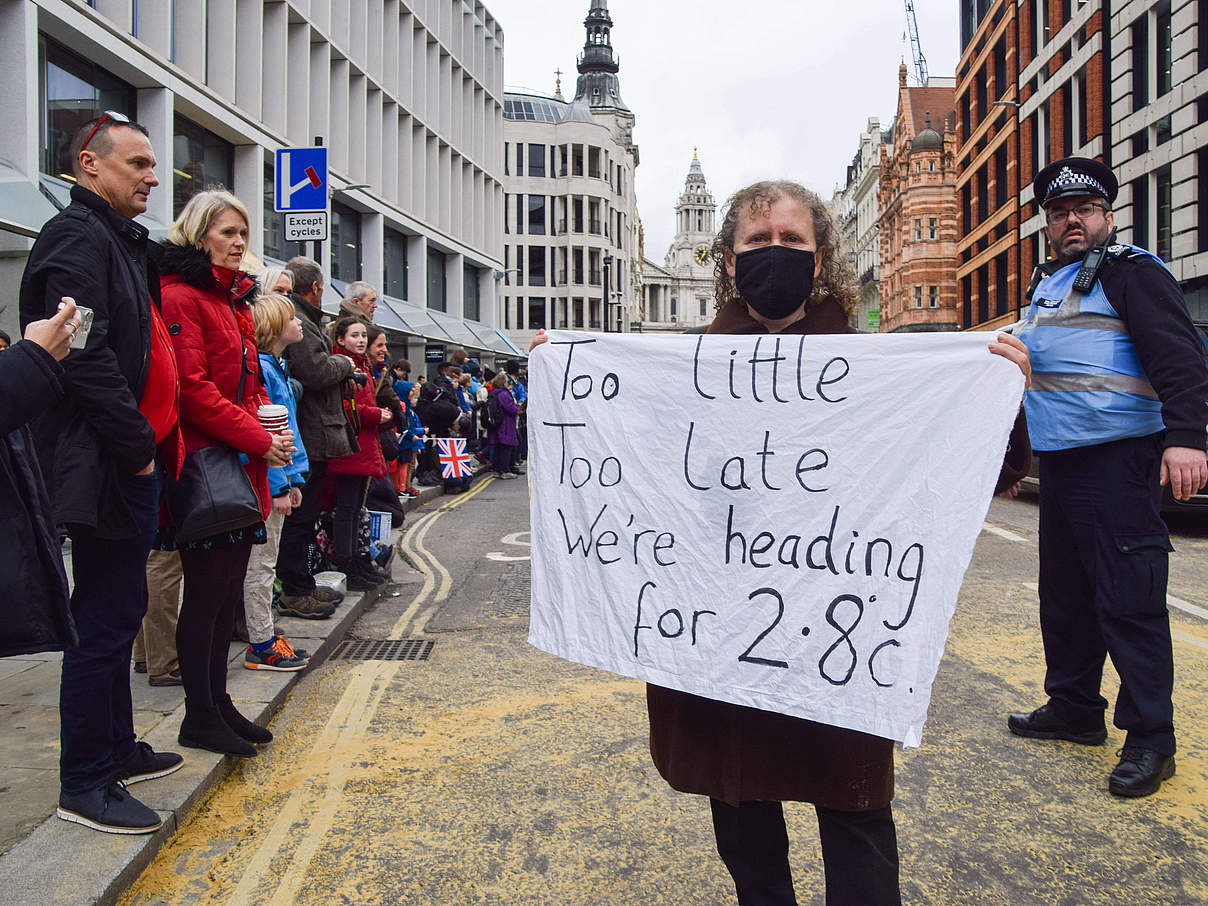 Except
cycles
Too little
Too Late
We're heading
for 2.8°c.